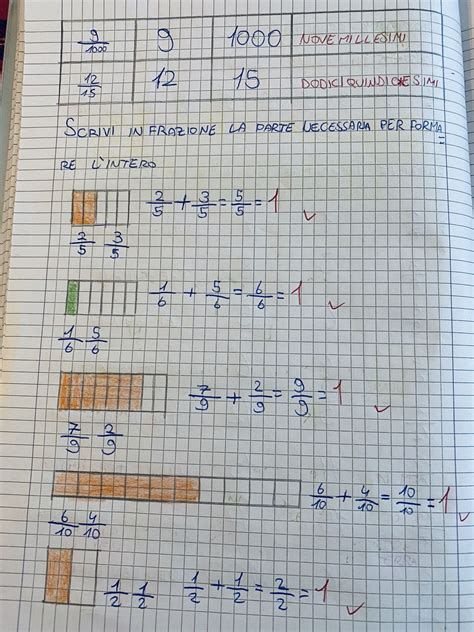 9/1000 9 1000 NOVE MILLESIMI
12/15 12 15 DODICI QUINDICESIMI
SCRIVI IN FRAZIONE LA PARTE NECESSARIA PER FORMA=
RE L'INTERO
2/5 + 3/5 = 5/5 = 1
2/5 3/5
1/6 + 5/6 = 6/6 = 1
1/6 5/6
7/9 + 2/9 = 9/9 = 1
7/9 2/9
6/10 + 4/10 = 10/10 = 1
6/10 4/10
1/2 1/2 1/2 + 1/2 = 2/2 = 1